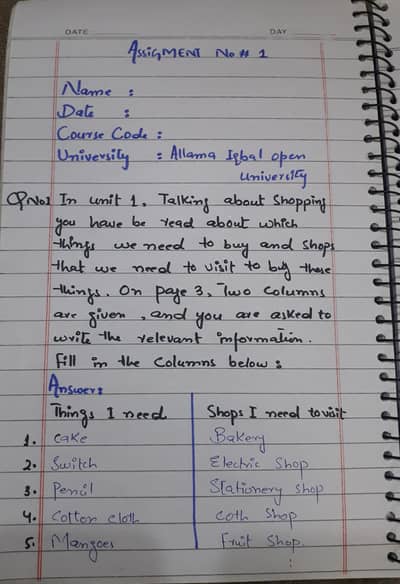 DATE DAY
Assignment No # 1
Name :
Date :
Course Code :
University : Allama Iqbal open
University
Q No1 In unit 1, Talking about Shopping
you have be read about which
things we need to buy and shops
that we need to visit to buy these
things. On page 3, Two columns
are given, and you are asked to
write the relevant information.
Fill in the Columns below :
Answer:
Things I need Shops I need to visit
1. Cake Bakery
2. Switch Electric Shop
3. Pencil Stationery shop
4. Cotton cloth Coth Shop
5. Mangoes Fruit Shop.